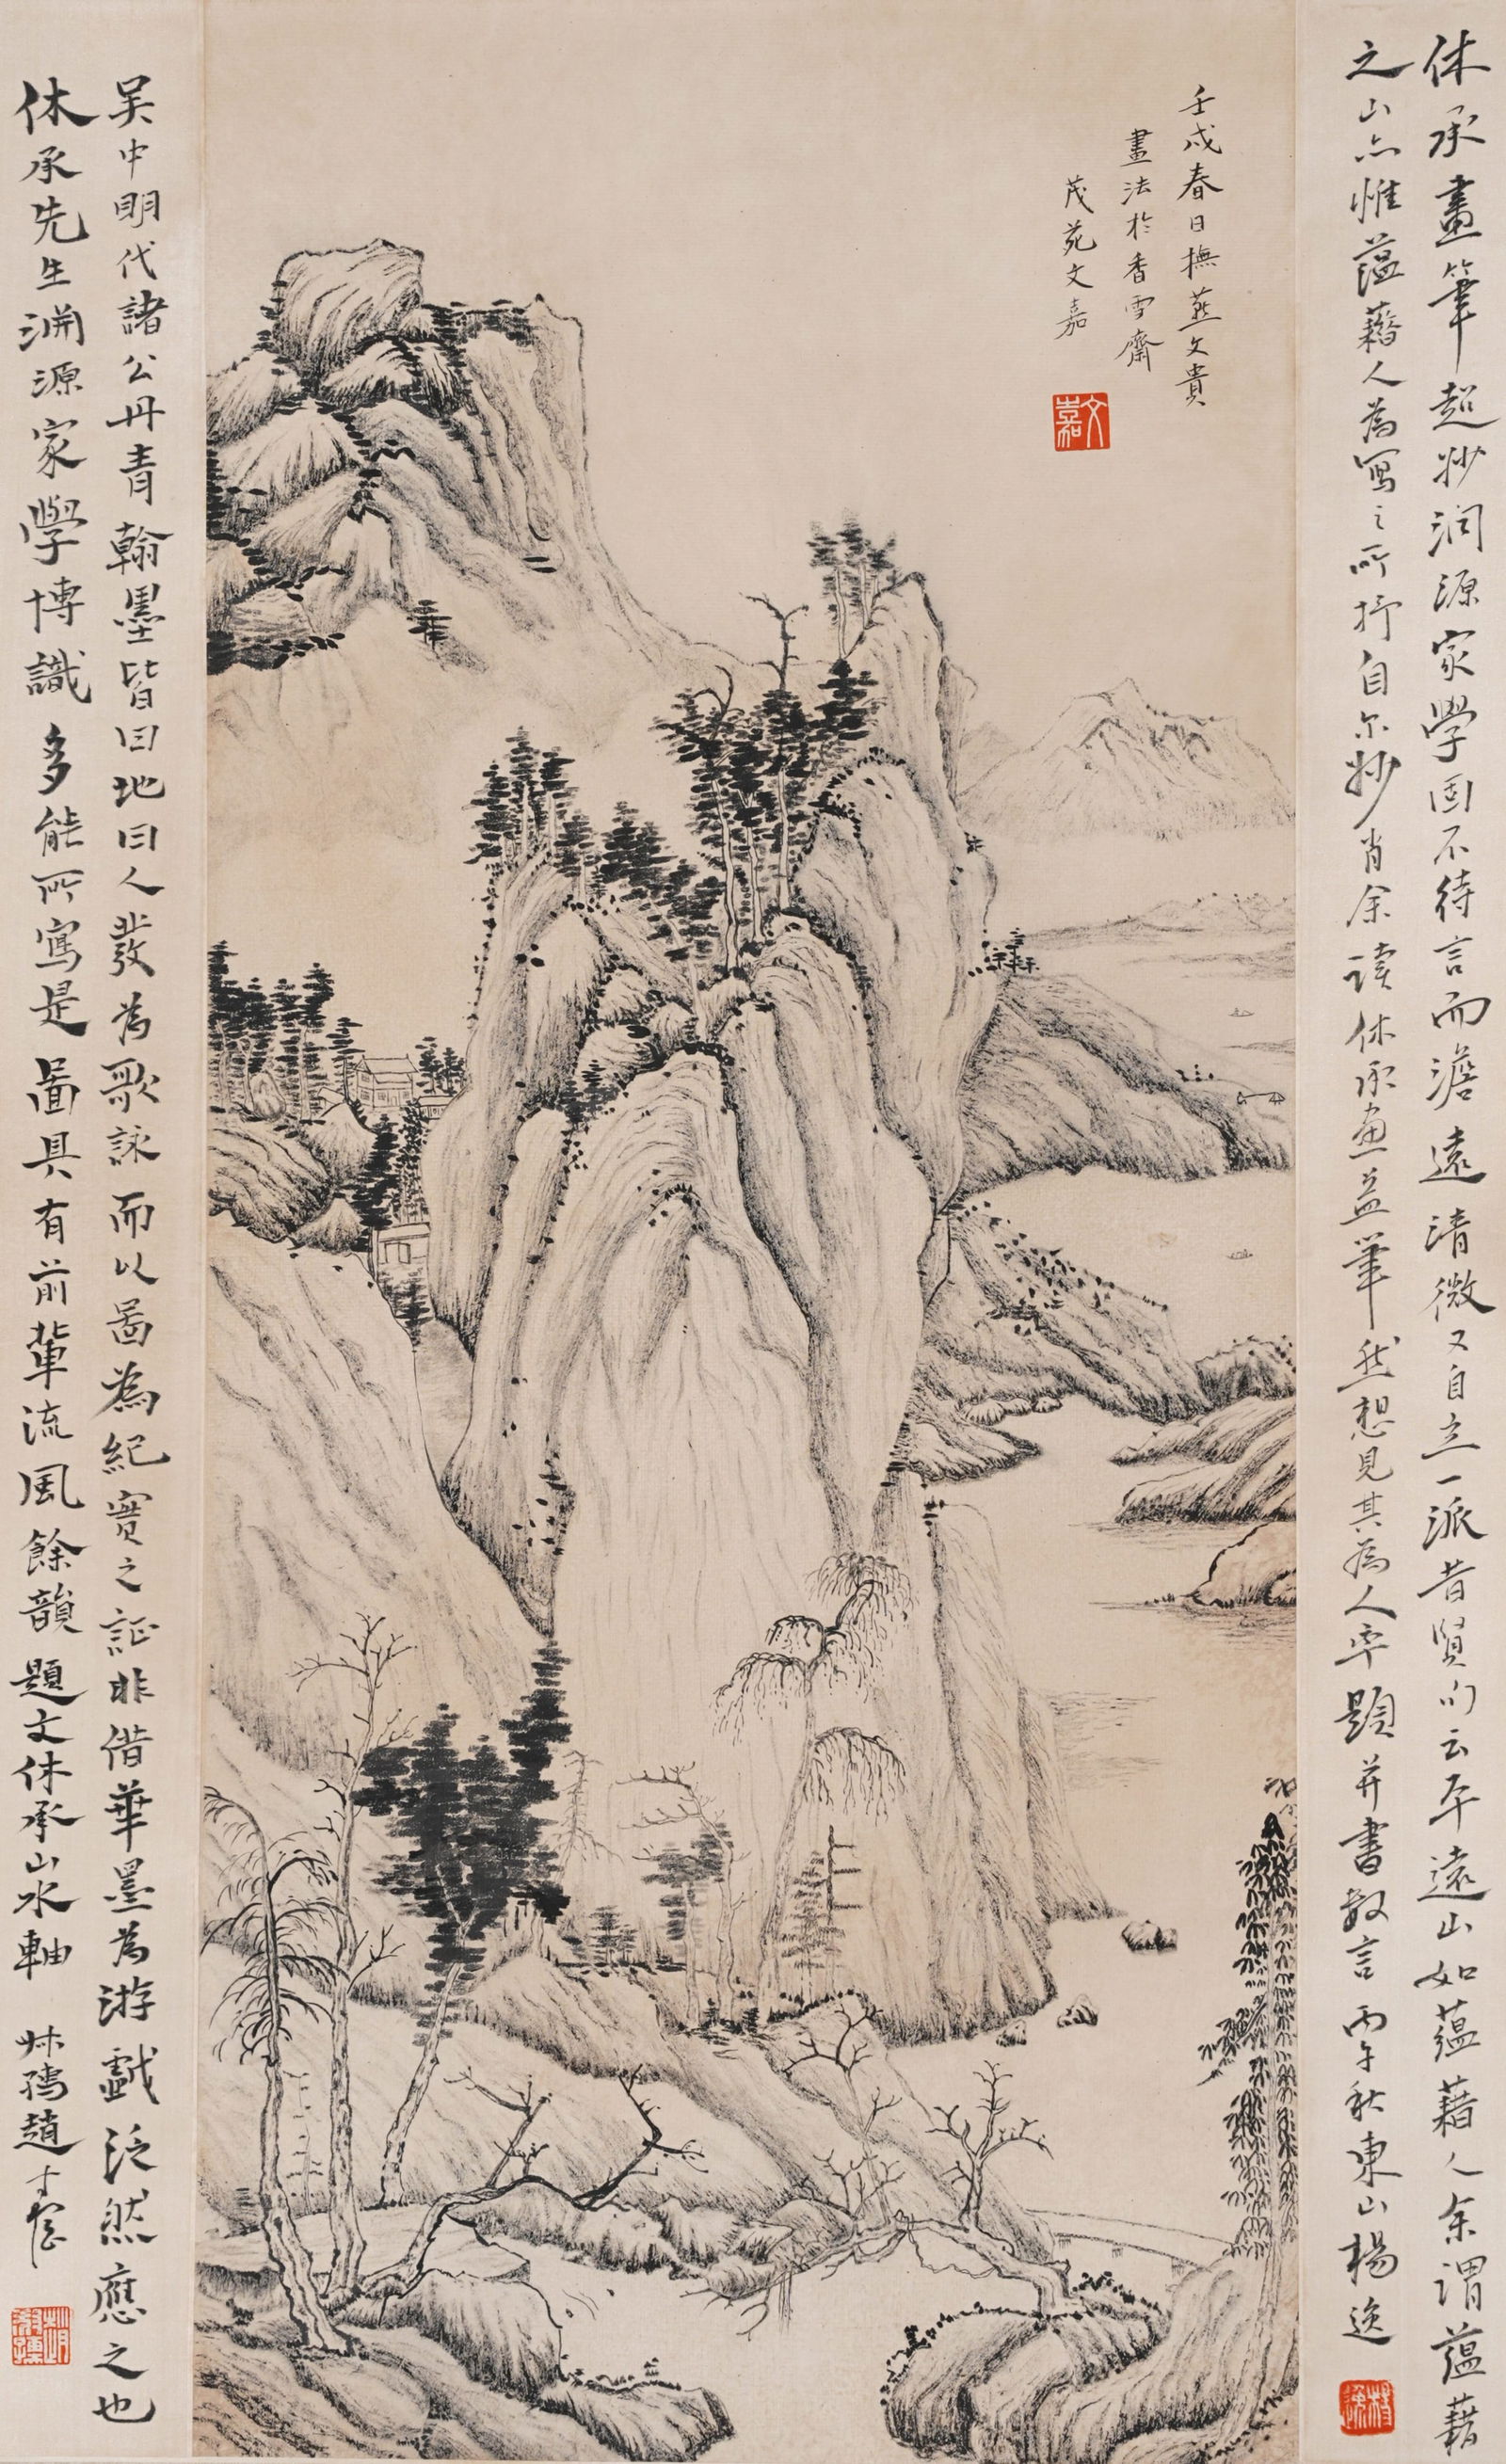 休承畫筆超妙淵源家學固不待言而澹遠清微又自立一派昔賢所云平遠山如蘊藉人余謂蘊藉
之山亦惟蘊藉人為寫之所抒自尔妙肖余讀休承畫益筆然想見其為人率題并書數言丙午秋東山楊逸
壬戌春日撫燕文貴
畫法於香雪齋
茂苑文嘉
文嘉
吴中明代諸公丹青翰墨皆因地因人發為歌詠而以圖為紀實之証非借華墨為游戲泛然應之也
休承先生淵源家學博識多能所寫是圖具有前輩流風餘韻題文休承山水軸 叔孺趙